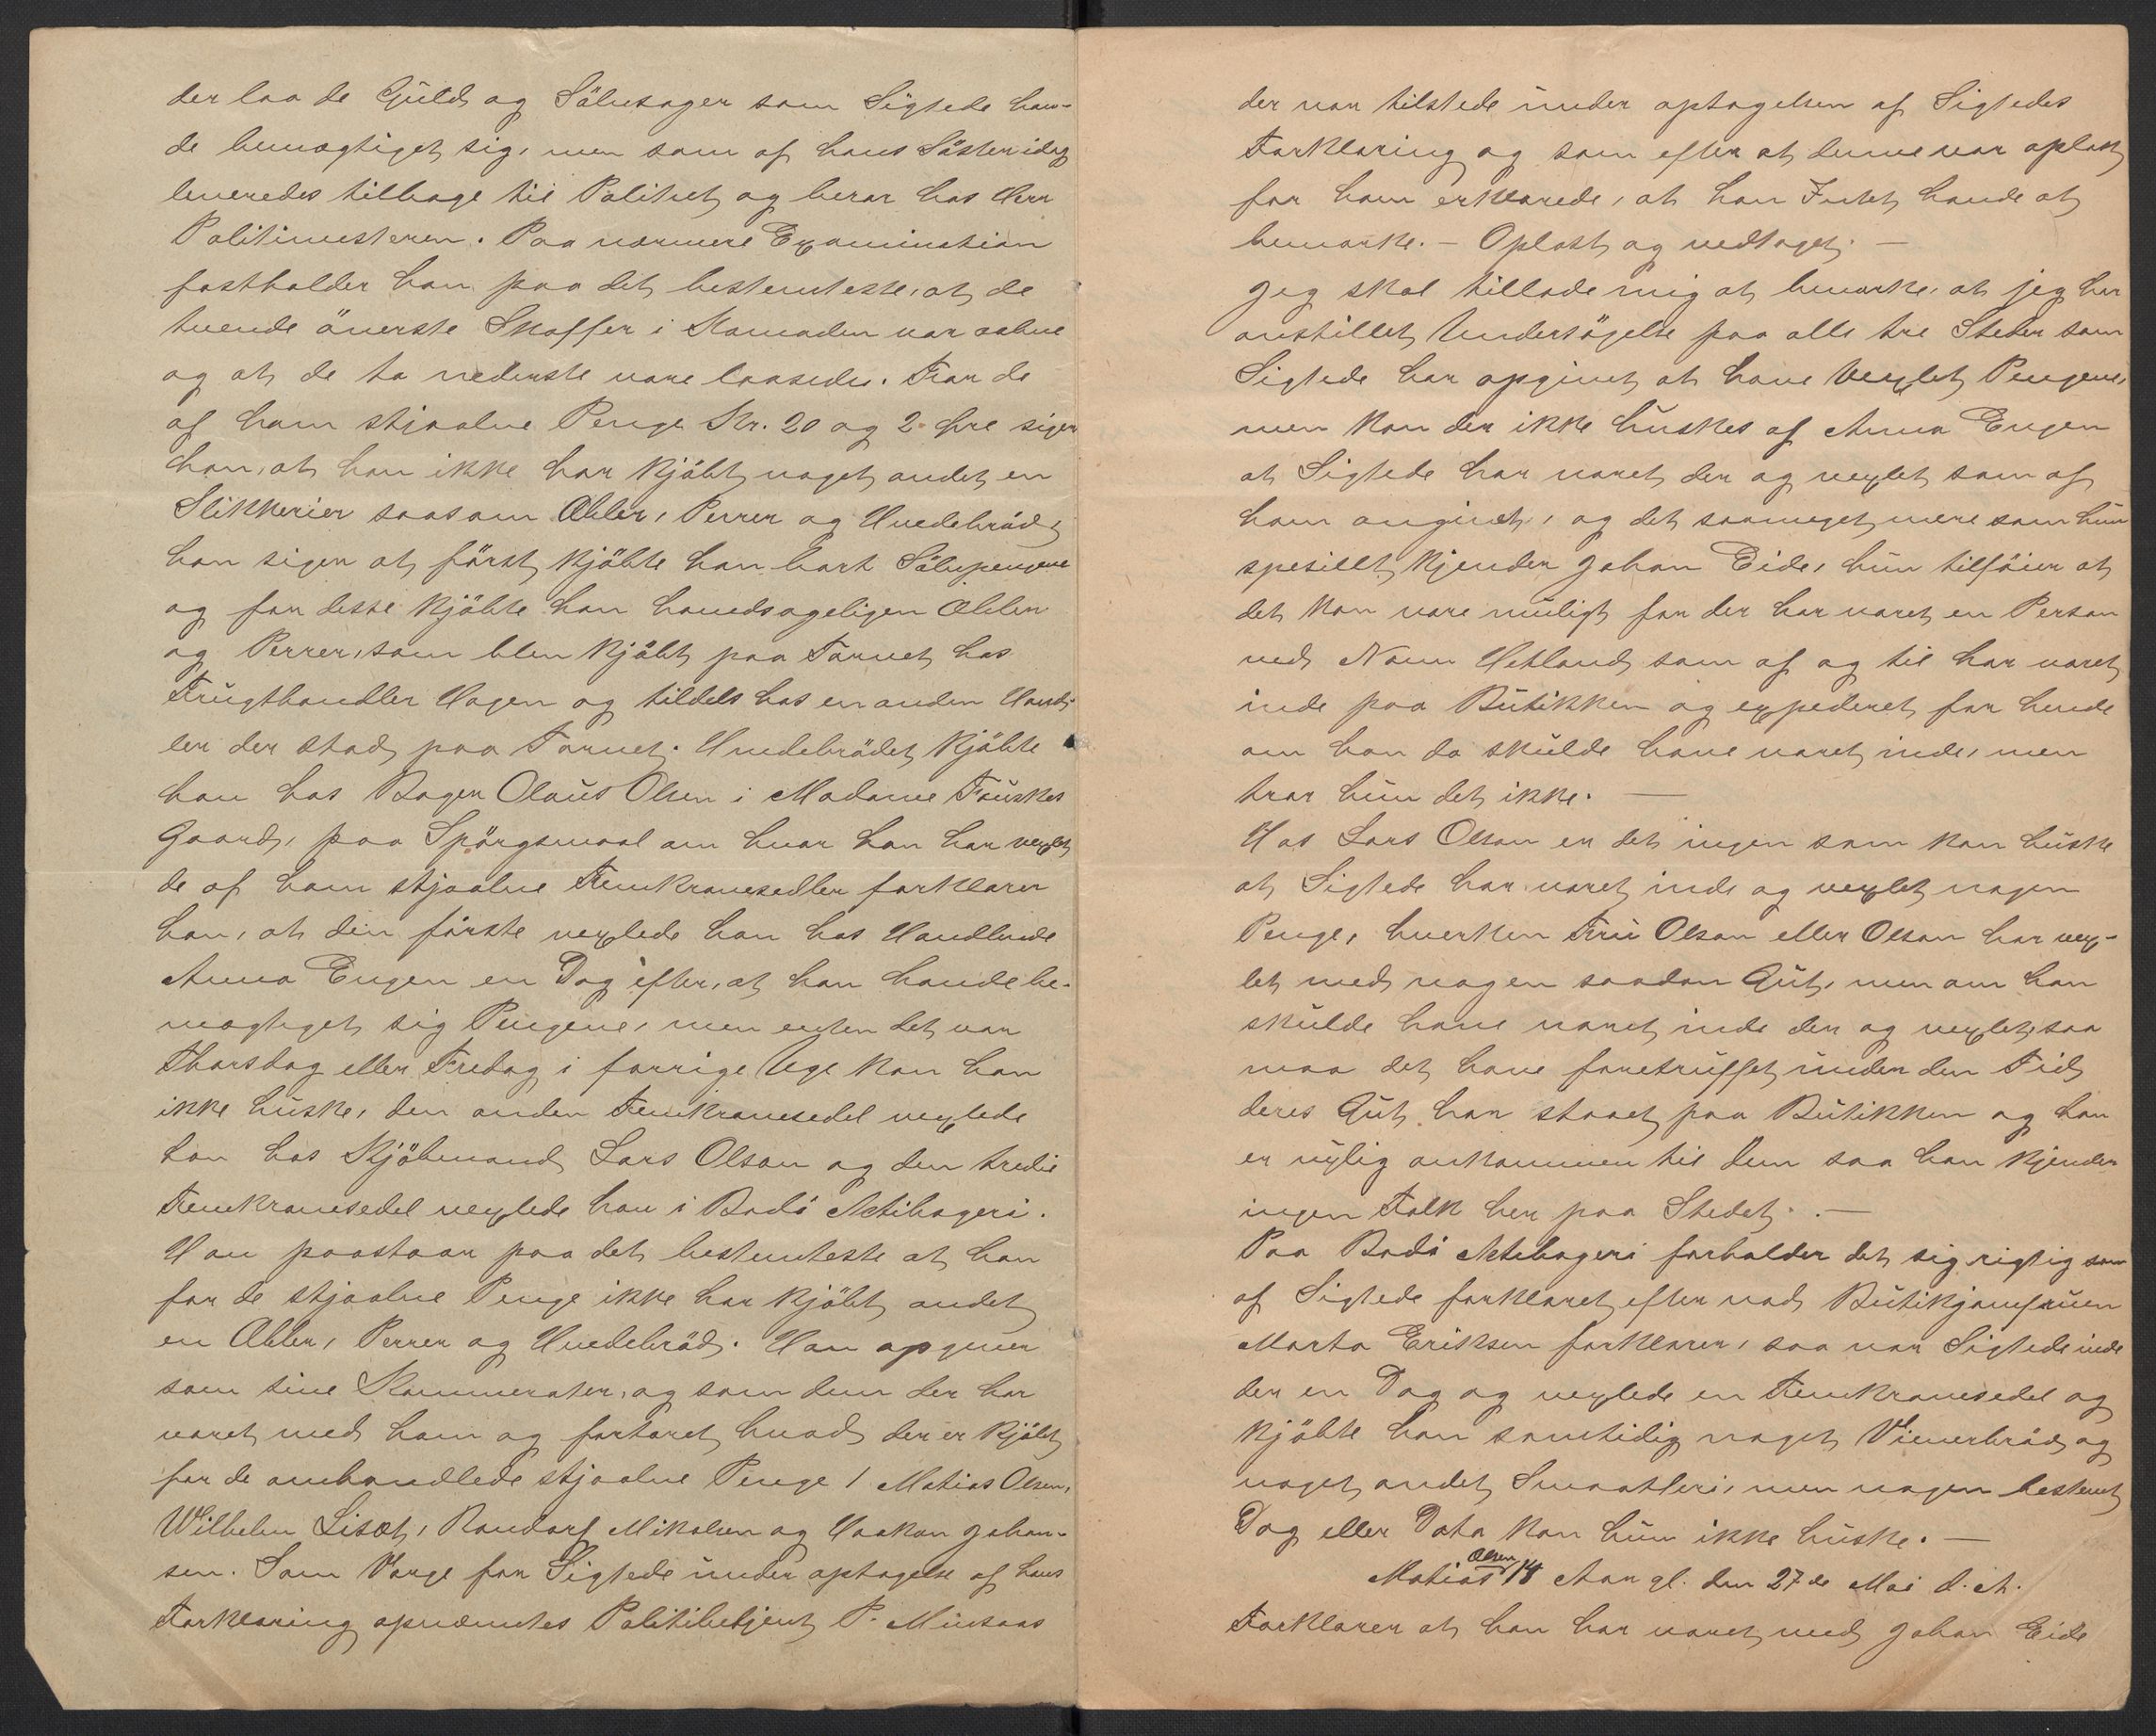 der laa de Guld og Sölvsager som Sigtede hav-
de bemægtiget sig, men som af hans Söster idag
leveredes tilbage til Politiet og beror hos Herr
Politimesteren. Paa nærmere Examination
fastholder han paa det bestemteste, at de
tvende överste Skuffer i Komoden var aabne
og at de to nederste vare laasede. For de
af ham stjaalne Penge Kr. 20 og 2 öre siger
han, at han ikke har kjöbt noget andet en
Slikkerier saasom Æbler, Perrer og Hvedebröd,
han siger at först kjöbte han bort Sölvpengene
og for disse kjöbte han hovedsageligen Æbler
og Perrer, som blev kjöbt paa Torvet hos
Frugthandler Hagen og tildels hos en anden Hand-
ler der stod paa Torvet. Hvedebrödet kjöbte
han hos Bager Olaus Olsen i Madame Fauskes
Gaard, paa Spörgsmaal om hvor han har vexlet
de af ham stjaalne Femkronesedler forklarer
han, at den förste vexlede han hos Handlende
Anna Engen en Dag efter, at han havde be-
mægtiget sig Pengene, men enten det var
Thorsdag eller Fredag i forrige Uge kan han
ikke huske, den anden Femkronesedel vexlede
han hos Kjöbmand Lars Olsen og den tredie
Femkronesedel vexlede han i Bodö Aktibageri.
Han paastaar paa det bestemteste at han
for de stjaalne Penge ikke har kjöbt andet
en Æbler, Perrer og Hvedebröd. Han opgiver
som sine Kammerater, og som dem der har
været med ham og fortæret hvad der er kjöbt
for de omhandlede stjaalne Penge / Matias Olsen,
Wilhelm Lisæt, Rondorf Mikalsen og Haakon Johan-
sen. Som Værge for Sigtede under optagelse af hans
Forklaring opnævntes Politibetjent P. Minsaas
der var tilstede under optagelsen af Sigtedes
Forklaring og som efter at denne var oplæst
for ham erklærede, at han Intet havde at
bemærke. – Oplæst og vedtaget. –
Jeg skal tillade mig at bemærke, at jeg har
anstillet Undersögelse paa alle tre Steder som
Sigtede har opgivet at have vexlet Pengene,
men kan der ikke huskes af Anna Engen
at Sigtede har været der og vexlet som af
ham angivet, og det saameget mere som hun
spesillt kjender Johan Eide, hun tilföier at
det kan være muligt for der har været en Person
ved Navn Hetland som af og til har været
inde paa Butikken og expederet for hende
om han da skulde have været inde, men
tror hun det ikke. –
Hos Lars Olsen er det ingen som kan huske
at Sigtede har været inde og vexlet nogen
Penge, hverken Fru Olsen eller Olsen har vex-
let med nogen saadan Gut, men om han
skulde have været inde der og vexlet, saa
maa det have foretruffet under den Tid
deres Gut har staaet paa Butikken og han
er nylig ankommen til dem saa han kjender
ingen Folk her paa Stedet. –
Paa Bodö Aktebageri forholder det sig rigtig som
af Sigtede forklaret, efter vad Butikjomfruen
Marta Eriksen forklarer, saa var Sigtede inde
der en Dag og vexlede en Femkronesedel og
kjöbte han samtidig noget Vienerbröd og
noget andet Smaatteri, men nogen bestemt
Dag eller Dato kan hun ikke huske. –
Matias Olsen 14 Aar gl. den 27de Mai d. A.
Forklarer at han har været med Johan Eide